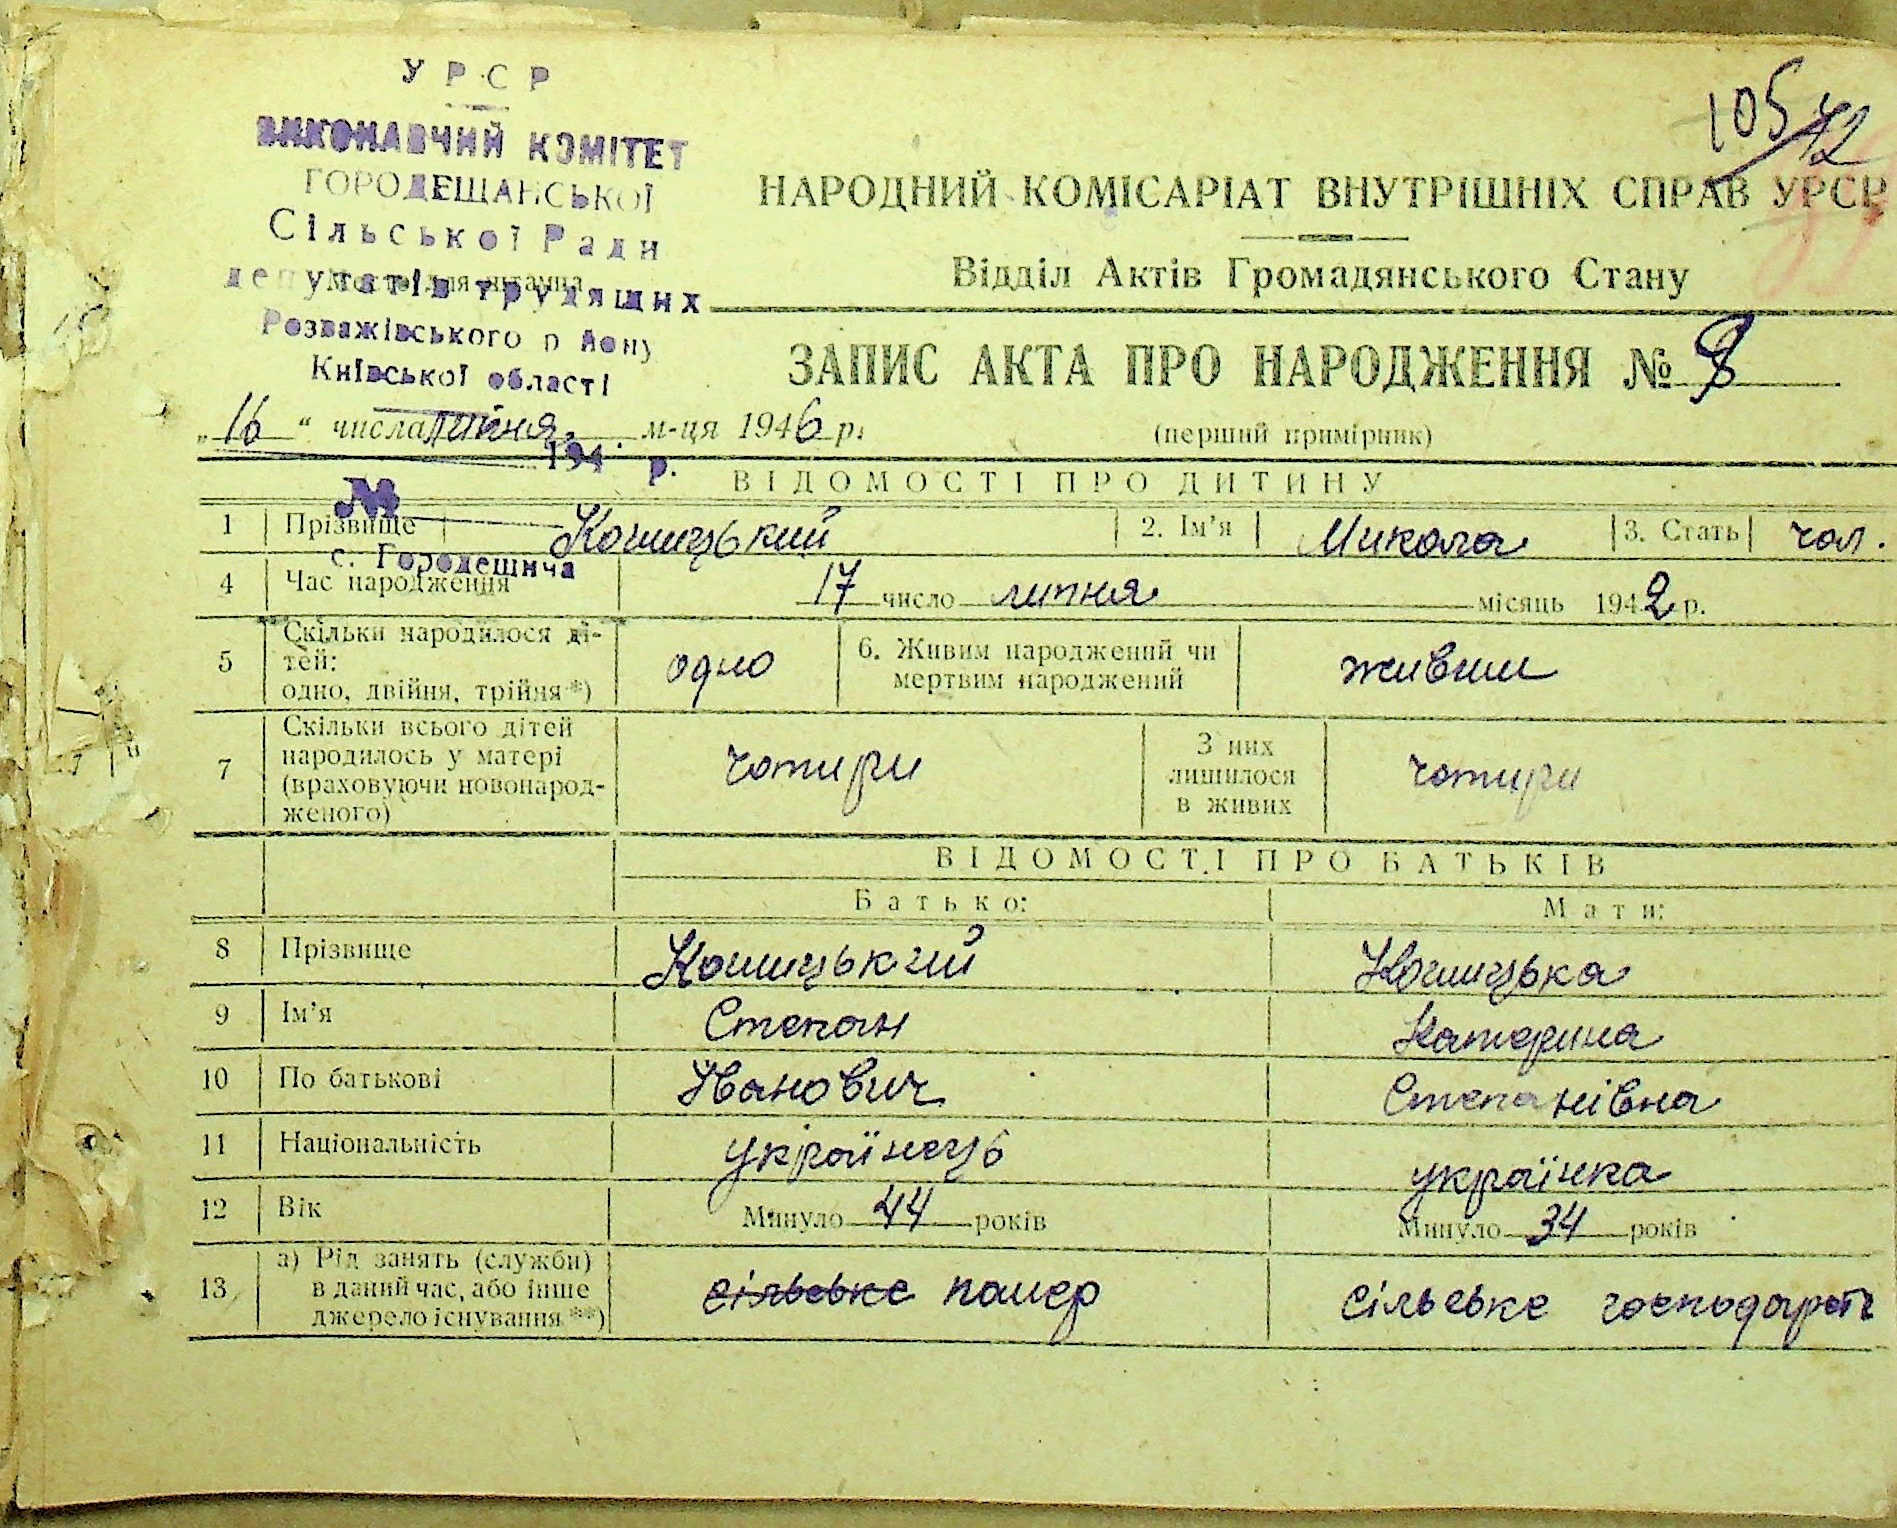 УРСР
ВИКОНАВЧИЙ КОМІТЕТ
ГОРОДЕЩАНСЬКОЇ
Сільської Ради
депутатів трудящих
Розважівського району
Київської області
194 р.
№
с. Городещина
105
42
НАРОДНИЙ КОМІСАРІАТ ВНУТРІШНІХ СПРАВ УРСР
Відділ Актів Громадянського Стану
ЗАПИС АКТА ПРО НАРОДЖЕННЯ №
„16“ числа липня м-ця 1946 р.
(перший примірник)
ВІДОМОСТІ ПРО ДИТИНУ
1 Прізвище Кошицький 2. Ім'я Микола 3. Стать чол.
4 Час народження 17 число липня місяць 1942 р.
5 Скільки народилося ді-
тей:
одно, двійня, трійня*) одно
6. Живим народжений чи
мертвим народжений живим
7 Скільки всього дітей
народилось у матері
(враховуючи новонарод-
женого) чотири
З них
лишилося
в живих чотири
ВІДОМОСТІ ПРО БАТЬКІВ
Батько: Мати:
8 Прізвище Кошицький Кошицька
9 Ім'я Степан Катерина
10 По батькові Іванович Степанівна
11 Національність українець українка
12 Вік Минуло 44 років Минуло 34 років
13 а) Рід занять (служби)
в даний час, або інше
джерело існування**) сільське помер сільське господарст